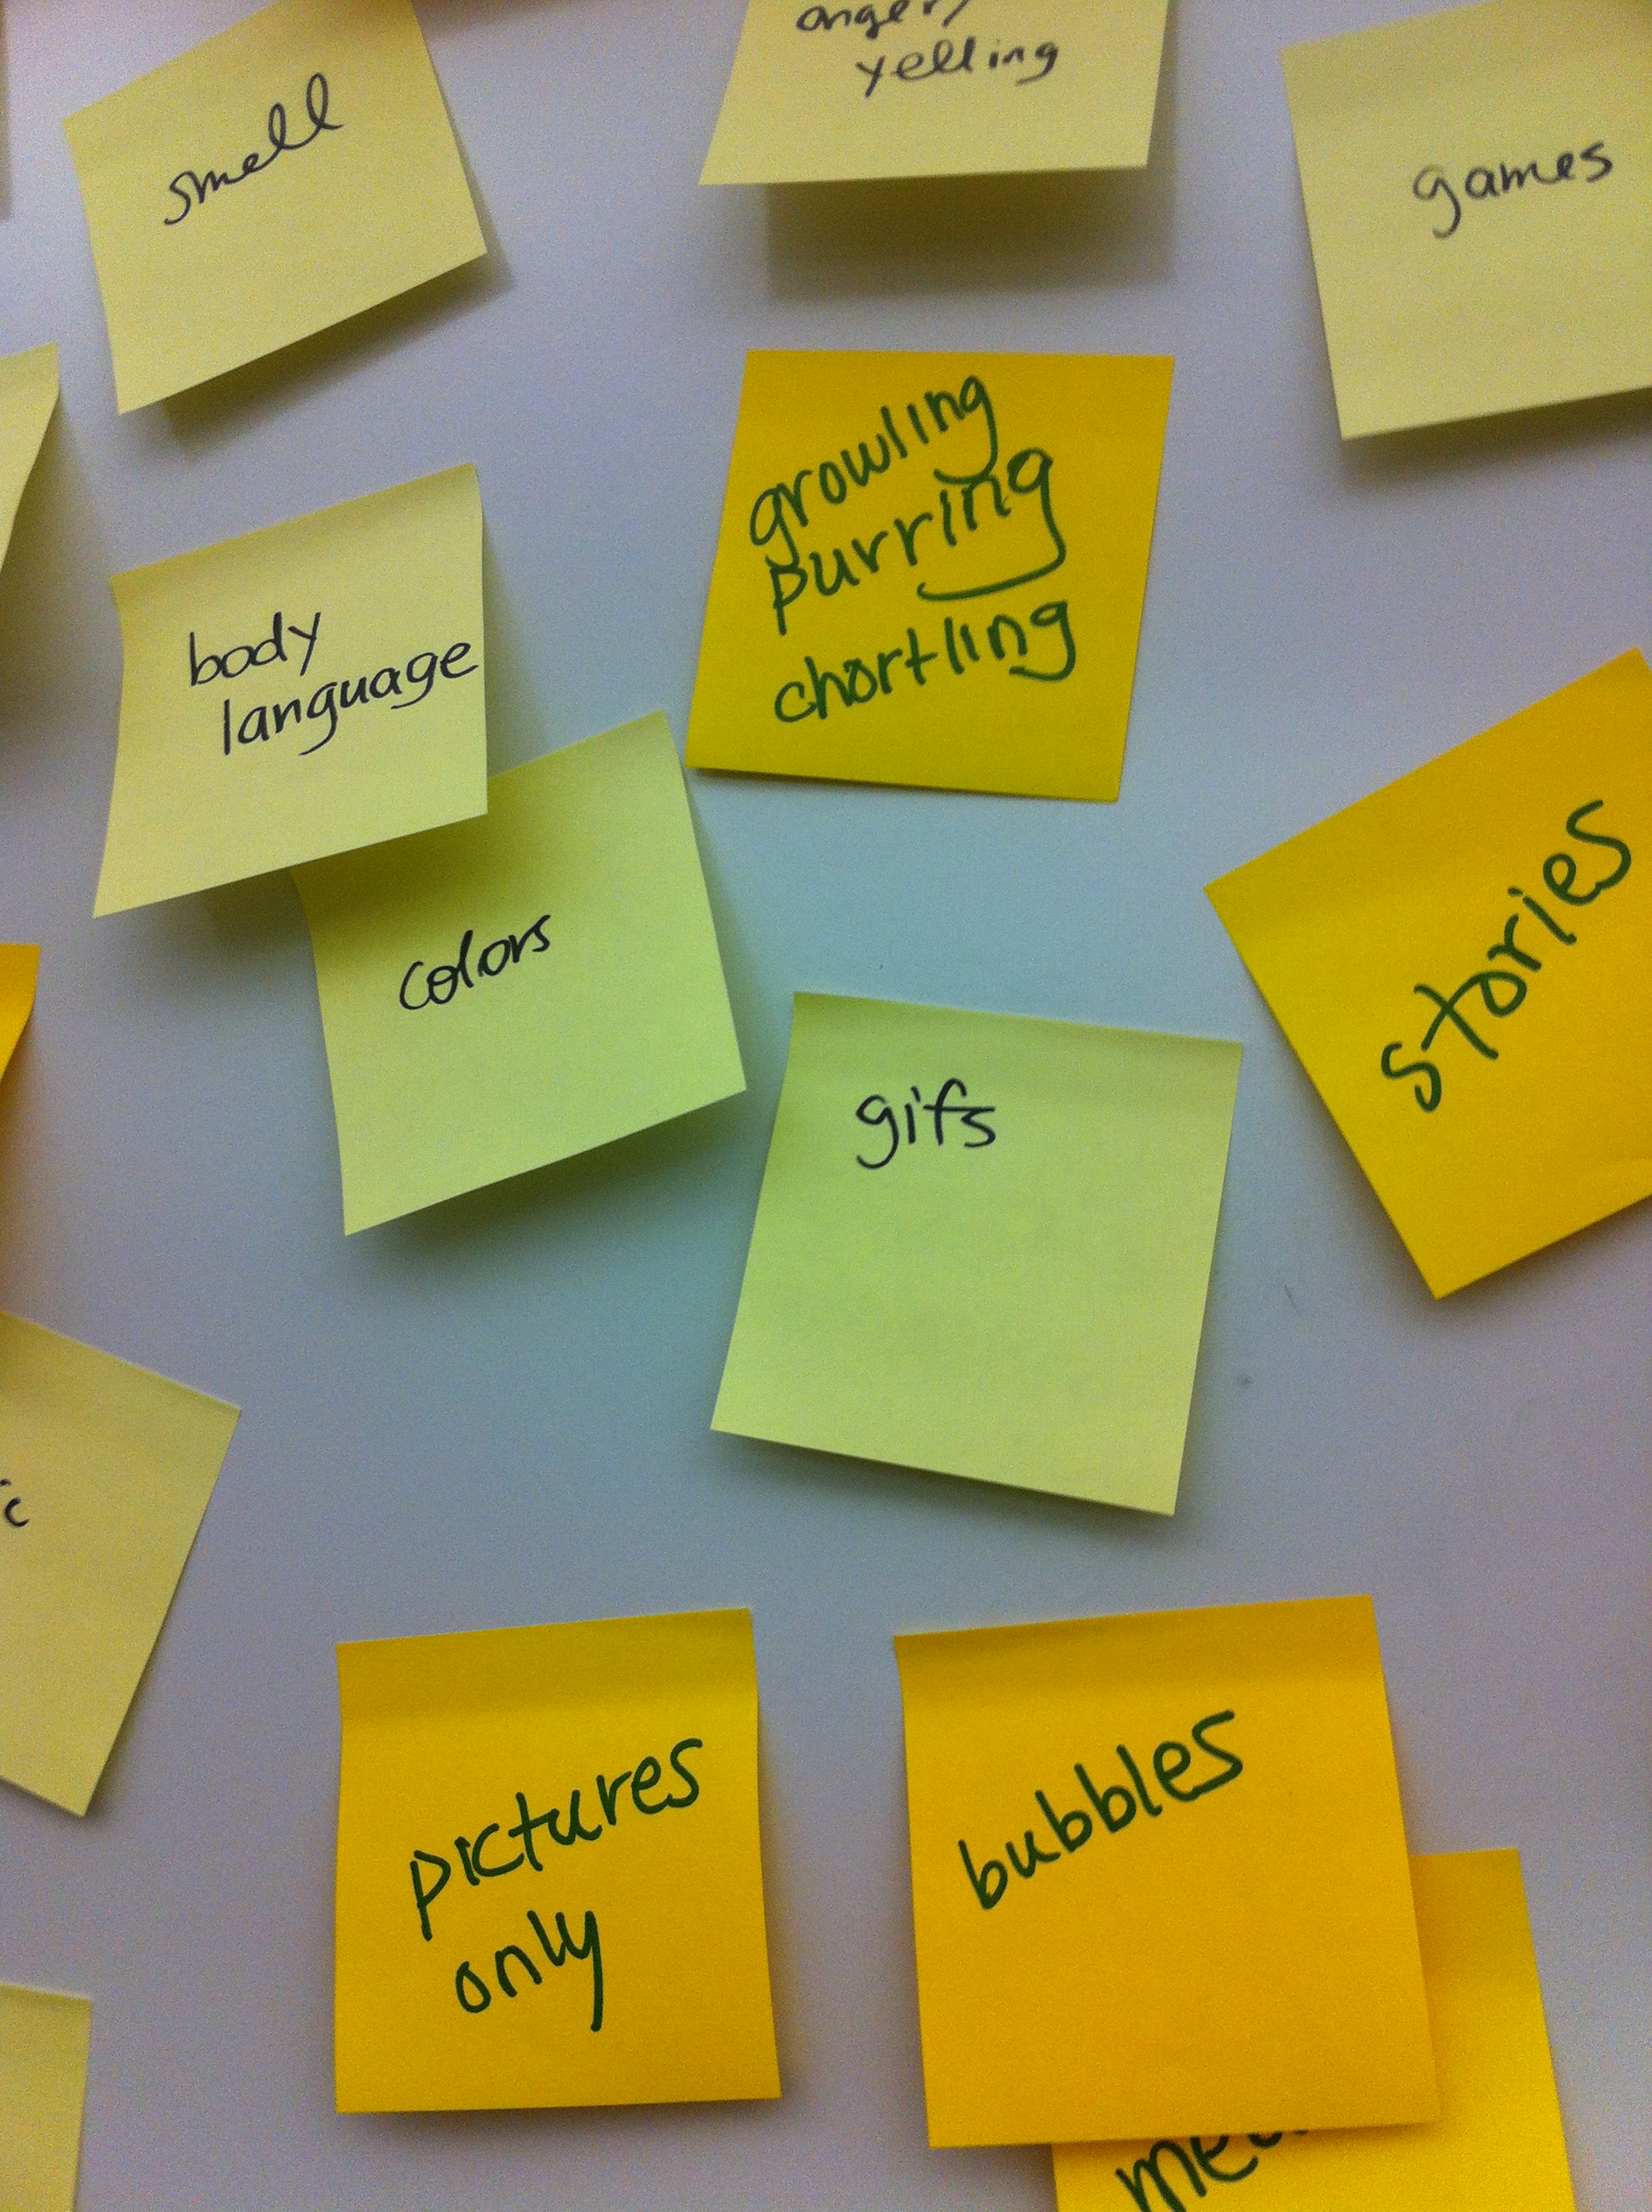 smell
yelling
games
growling
purring
chortling
body
language
colors
stories
gifs
pictures
only
bubbles